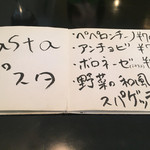 asta
パスタ
・ペペロンチーノ ¥
・アンチョビ ¥
・ボロネーゼ
・野菜の和風
スパゲッテ